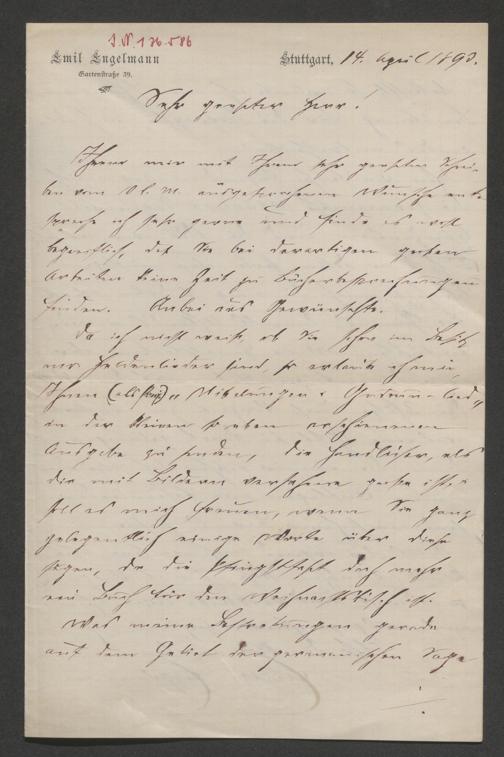 I.N. 136.586
Emil Engelmann
Gartenstraße 39.
Stuttgart, 14. April 1893.
Sehr geehrter Herr!
Ihrem mir mit Ihrem sehr geehrten Schrei-
ben vom ausgesprochenen Wunsche ent-
spreche ich sehr gerne und finde es wohl
begreiflich, daß Sie bei derartigen großen
Arbeiten keine Zeit zu Bücherbesprechungen
finden. Anbei das Gewünschte.
Da ich nicht weiß, ob Sie schon im Besitz
der Heldenlieder sind, so erlaube ich mir
Ihnen "Nibelungen- & Gudrun-lied"
in der kleinen so eben erschienenen
Ausgabe zu senden, die handlicher, als
die mit Bildern versehene große ist.
soll es mich freuen, wenn Sie ganz
gelegentlich einige Worte über diese
sagen, da die doch mehr
ein Buch für den Weihnachtstisch ist.
Was meine Bestrebungen gerade
auf dem Gebiet der germanischen Sage